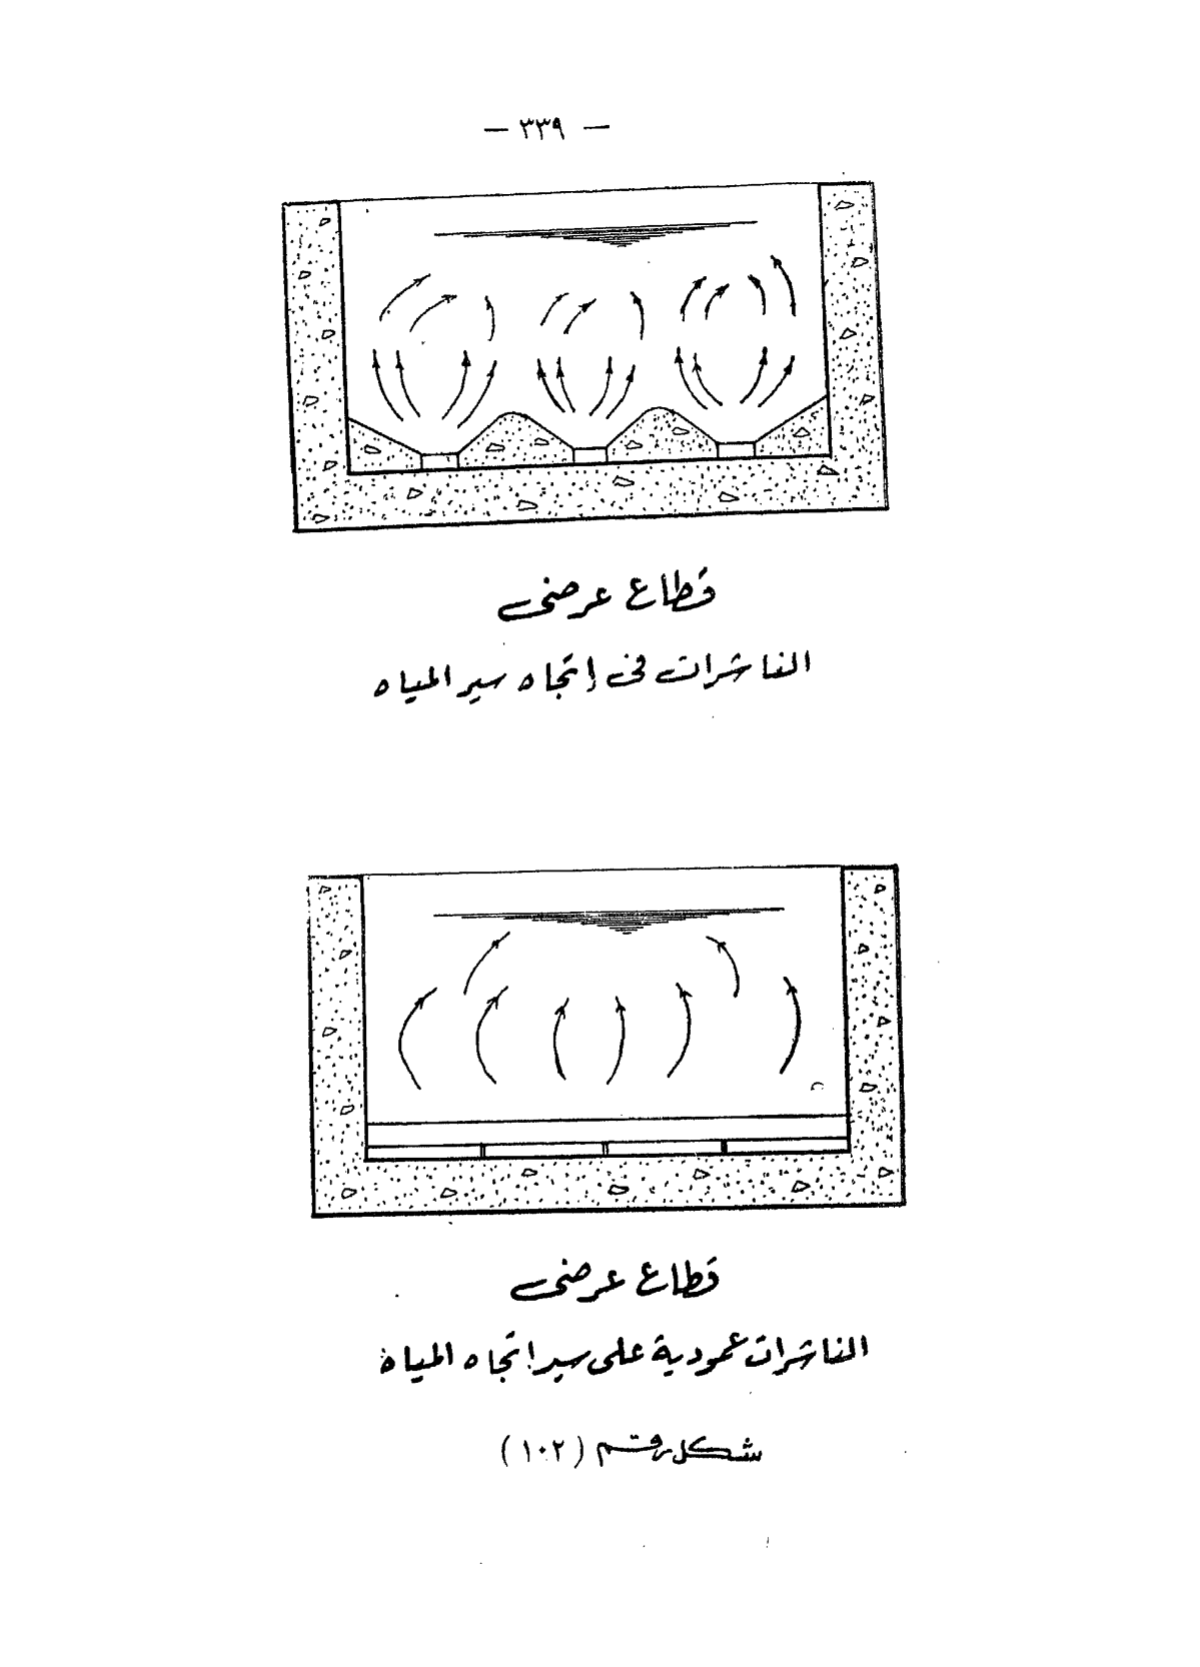 — ٣٣٩ —
قطاع عرضى
الناشرات فى إتجاه سير المياه
قطاع عرضى
الناشرات عمودية على سير إتجاه المياة
شكل رقم (١٠٢)